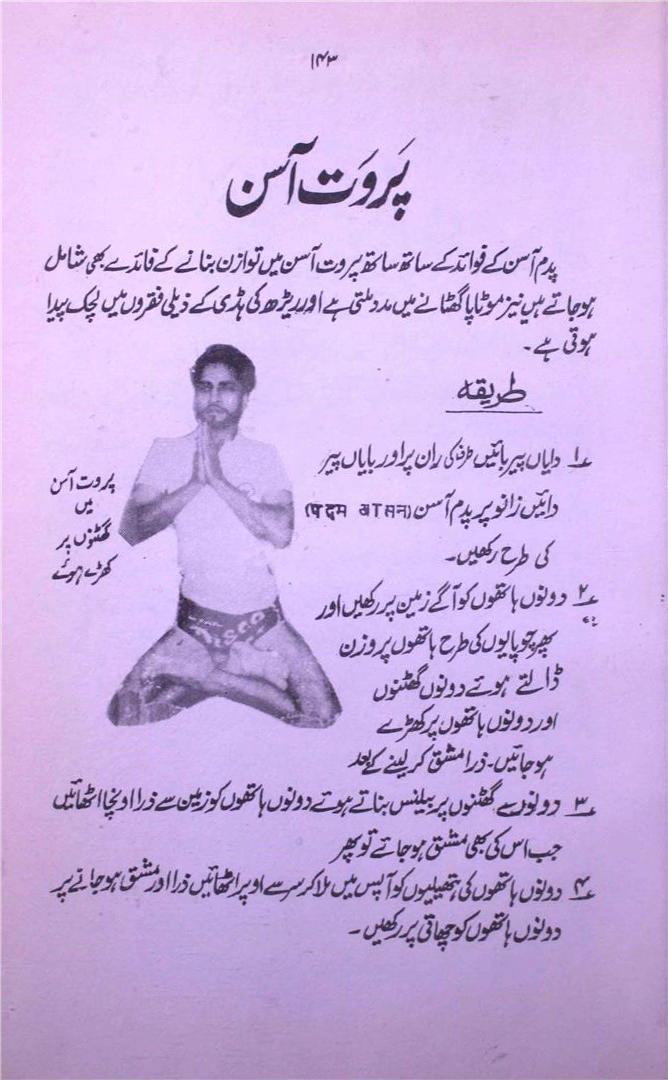 ۱۴۳
پَروَت آسن
پدم آسن کے فوائد کے ساتھ ساتھ پروت آسن میں توازن بنانے کے فائدے بھی شامل
ہو جاتے ہیں نیز موٹاپا گھٹانے میں مدد ملتی ہے اور ریڑھ کی ہڈی کے ذیلی فقروں میں لچک پیدا
ہوتی ہے۔
طریقہ
۱ دایاں پیر بائیں طرف کی ران پر اور بایاں پیر
دائیں زانو پر پدم آسن (पदम आसन)
کی طرح رکھیں۔
پروت آسن
میں
گھٹنوں پر
کھڑے ہوئے
۲ دونوں ہاتھوں کو آگے زمین پر رکھیں اور
پھر چوپایوں کی طرح ہاتھوں پر وزن
ڈالتے ہوئے دونوں گھٹنوں
اور دونوں ہاتھوں پر کھڑے
ہو جائیں۔ ذرا مشق کر لینے کے بعد
۳ دونوں سے گھٹنوں پر بیلنس بناتے ہوئے دونوں ہاتھوں کو زمین سے ذرا اونچا اٹھائیں
جب اس کی بھی مشق ہو جائے تو پھر
۴ دونوں ہاتھوں کی ہتھیلیوں کو آپس میں ملا کر سر سے اوپر اٹھائیں ذرا اور مشق ہو جانے پر
دونوں ہاتھوں کو چھاتی پر رکھیں۔